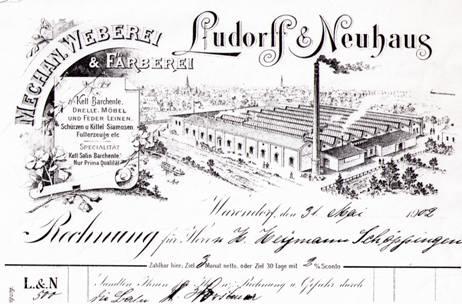 MECHAN. WEBEREI
& FÄRBEREI
Ludorff & Neuhaus
Kett Barchente.
DRELLE, MÖBEL
UND FEDER LEINEN.
Schürzen u Kittel Siamosen
Futterzeuge etc
SPECIALITÄT
Kett Satin Barchente
Nur Prima Qualität
Warendorf, den 31 Mai 1902
Rechnung für Herrn H. Heymann Schöppingen
Zahlbar hier; Ziel 3 Monat netto, oder Ziel 30 Tage mit 2 % Sconto
L.&N
Sandten Ihnen Rechnung u Gefahr durch